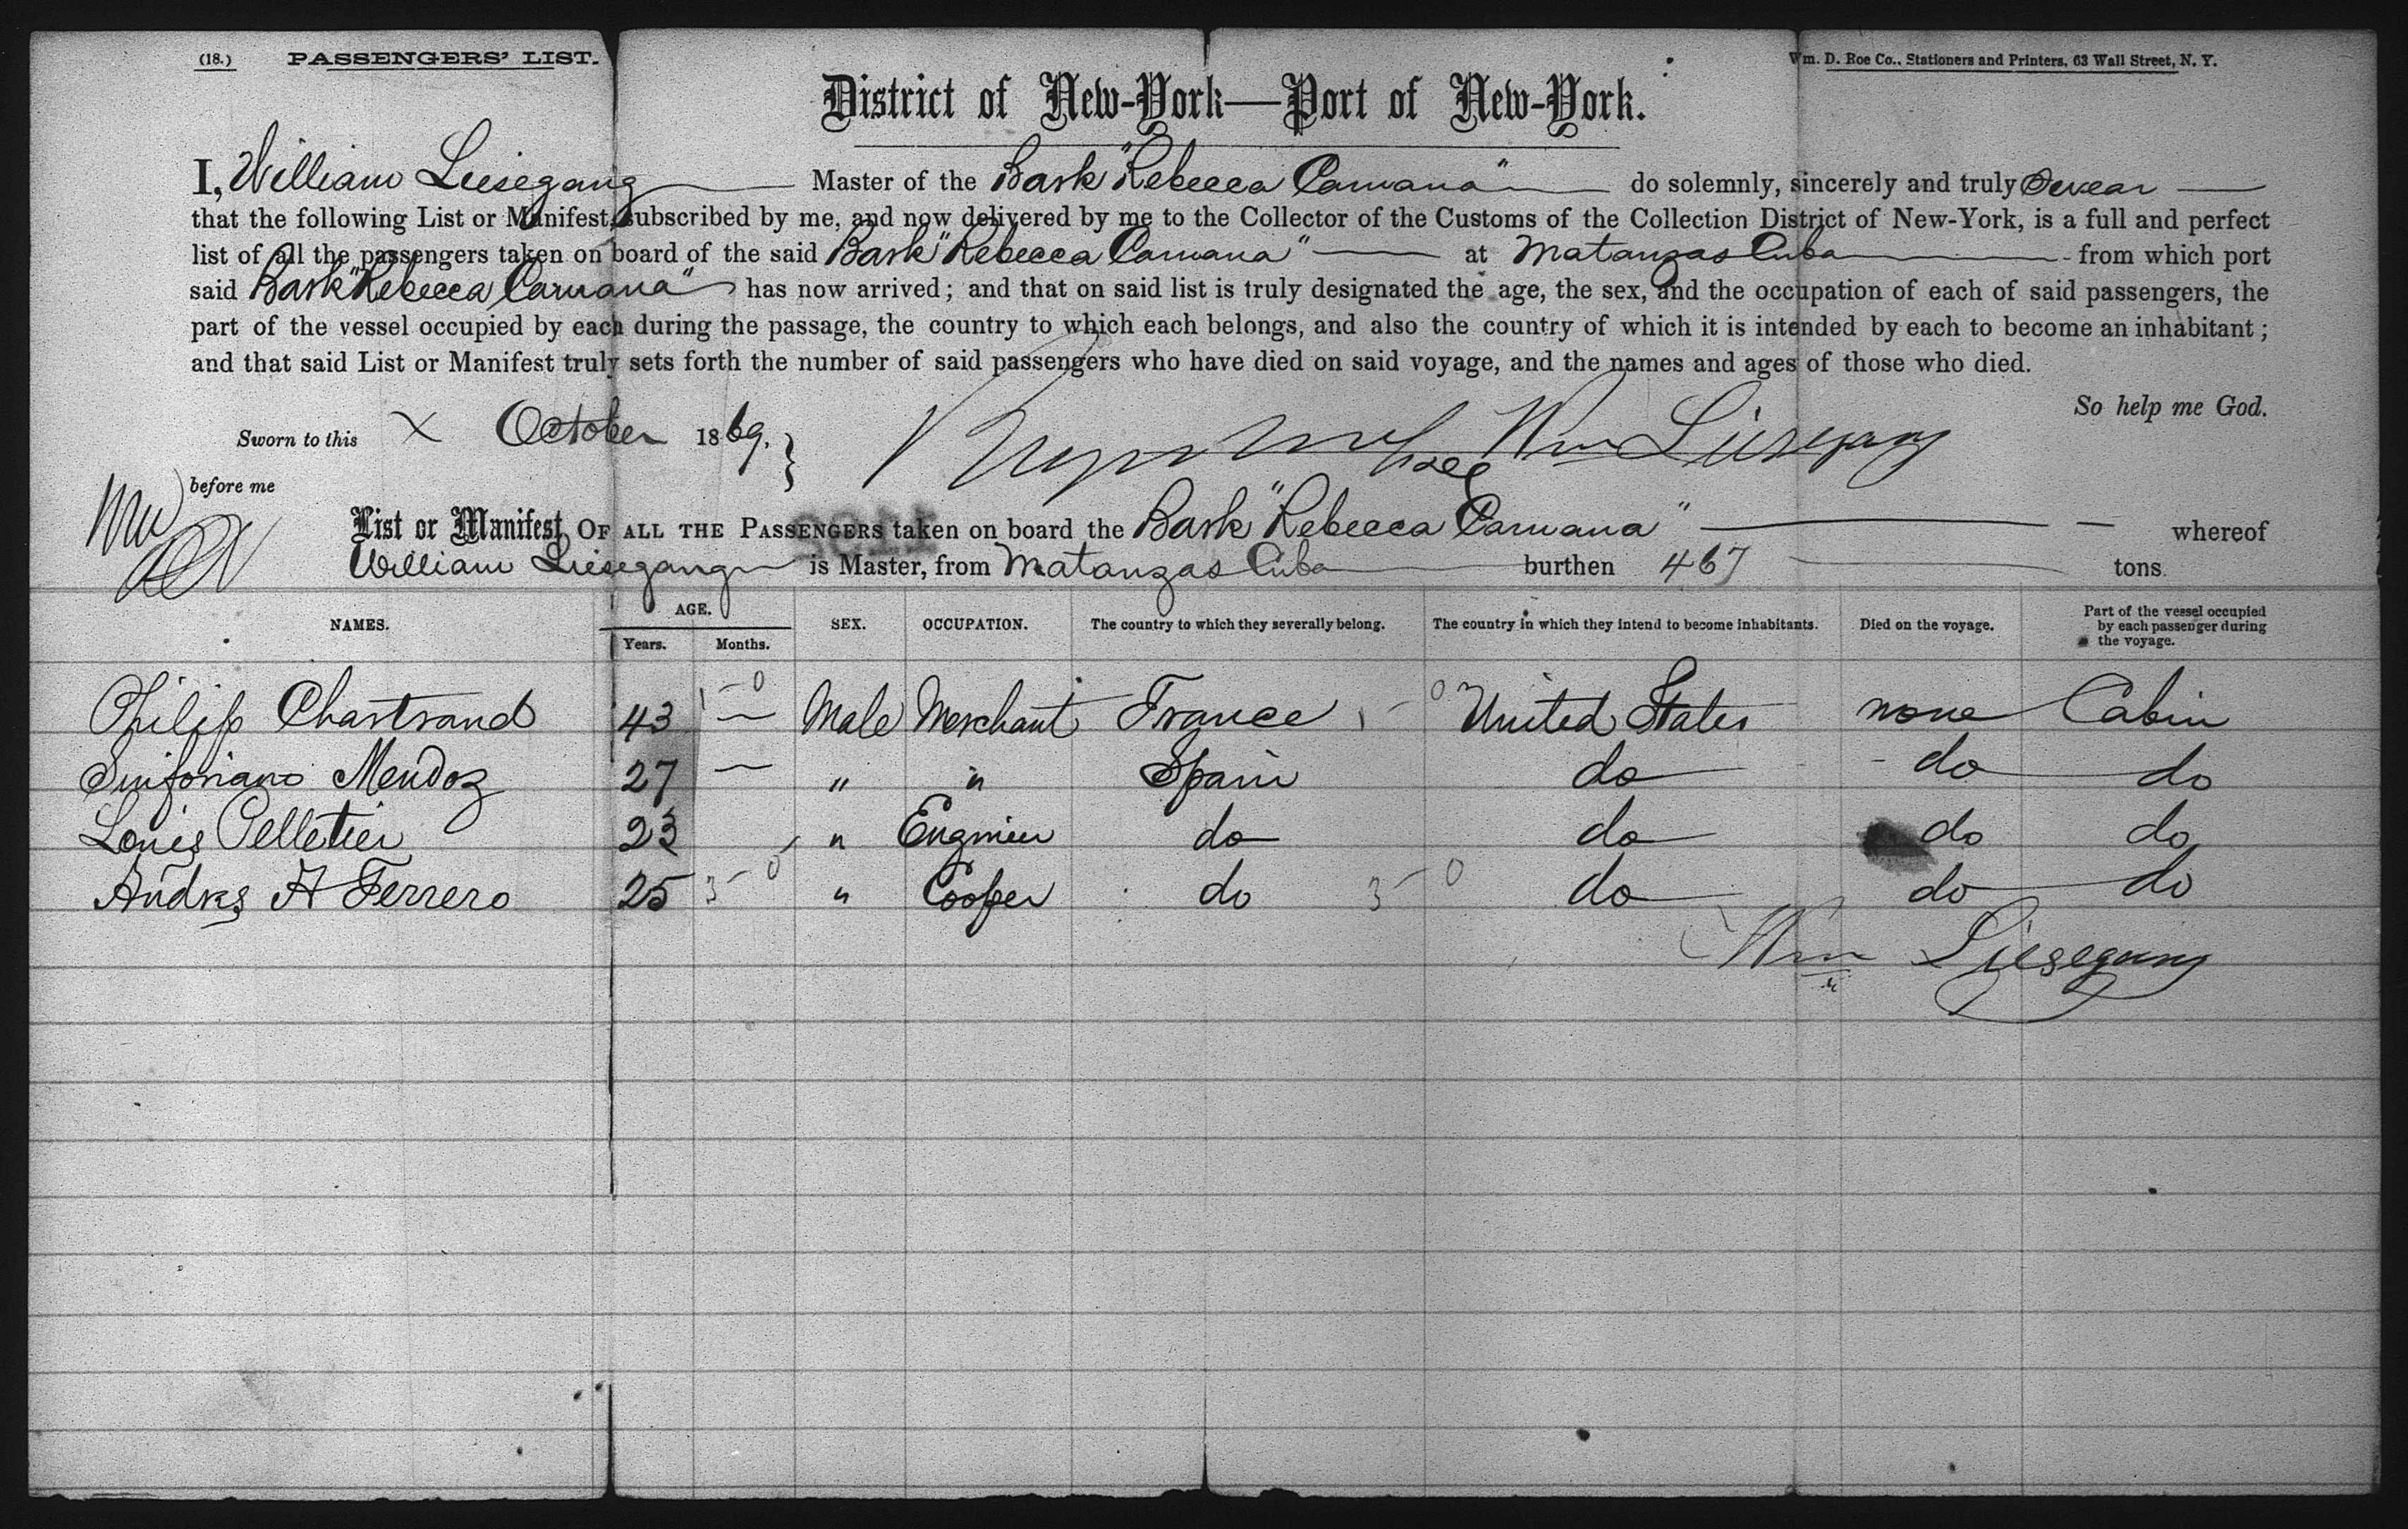 (18.) PASSENGERS' LIST. Wm. D. Roe Co., Stationers and Printers, 63 Wall Street, N. Y.
District of New-York—Port of New-York.
I, William Liesegang Master of the Bark "Rebecca Caruana" do solemnly, sincerely and truly Swear
that the following List or Manifest, subscribed by me, and now delivered by me to the Collector of the Customs of the Collection District of New-York, is a full and perfect
list of all the passengers taken on board of the said Bark "Rebecca Caruana" at Matanzas Cuba from which port
said Bark "Rebecca Caruana" has now arrived; and that on said list is truly designated the age, the sex, and the occupation of each of said passengers, the
part of the vessel occupied by each during the passage, the country to which each belongs, and also the country of which it is intended by each to become an inhabitant;
and that said List or Manifest truly sets forth the number of said passengers who have died on said voyage, and the names and ages of those who died.
So help me God.
Sworn to this X October 1869. Wm Liesegang
before me
List or Manifest OF ALL THE PASSENGERS taken on board the Bark "Rebecca Caruana" whereof
William Liesegang is Master, from Matanzas Cuba burthen 467 tons.
NAMES. AGE. Years. Months. SEX. OCCUPATION. The country to which they severally belong. The country in which they intend to become inhabitants. Died on the voyage. Part of the vessel occupied by each passenger during the voyage.
Philip Chartrand 43 — Male Merchant France United States none Cabin
Sinforiano Mendoz 27 — " " Spain do do do
Louis Pelletier 23 " Engineer do do do do
Andres A Ferrero 25 " Cooper do do do do
Wm Liesegang